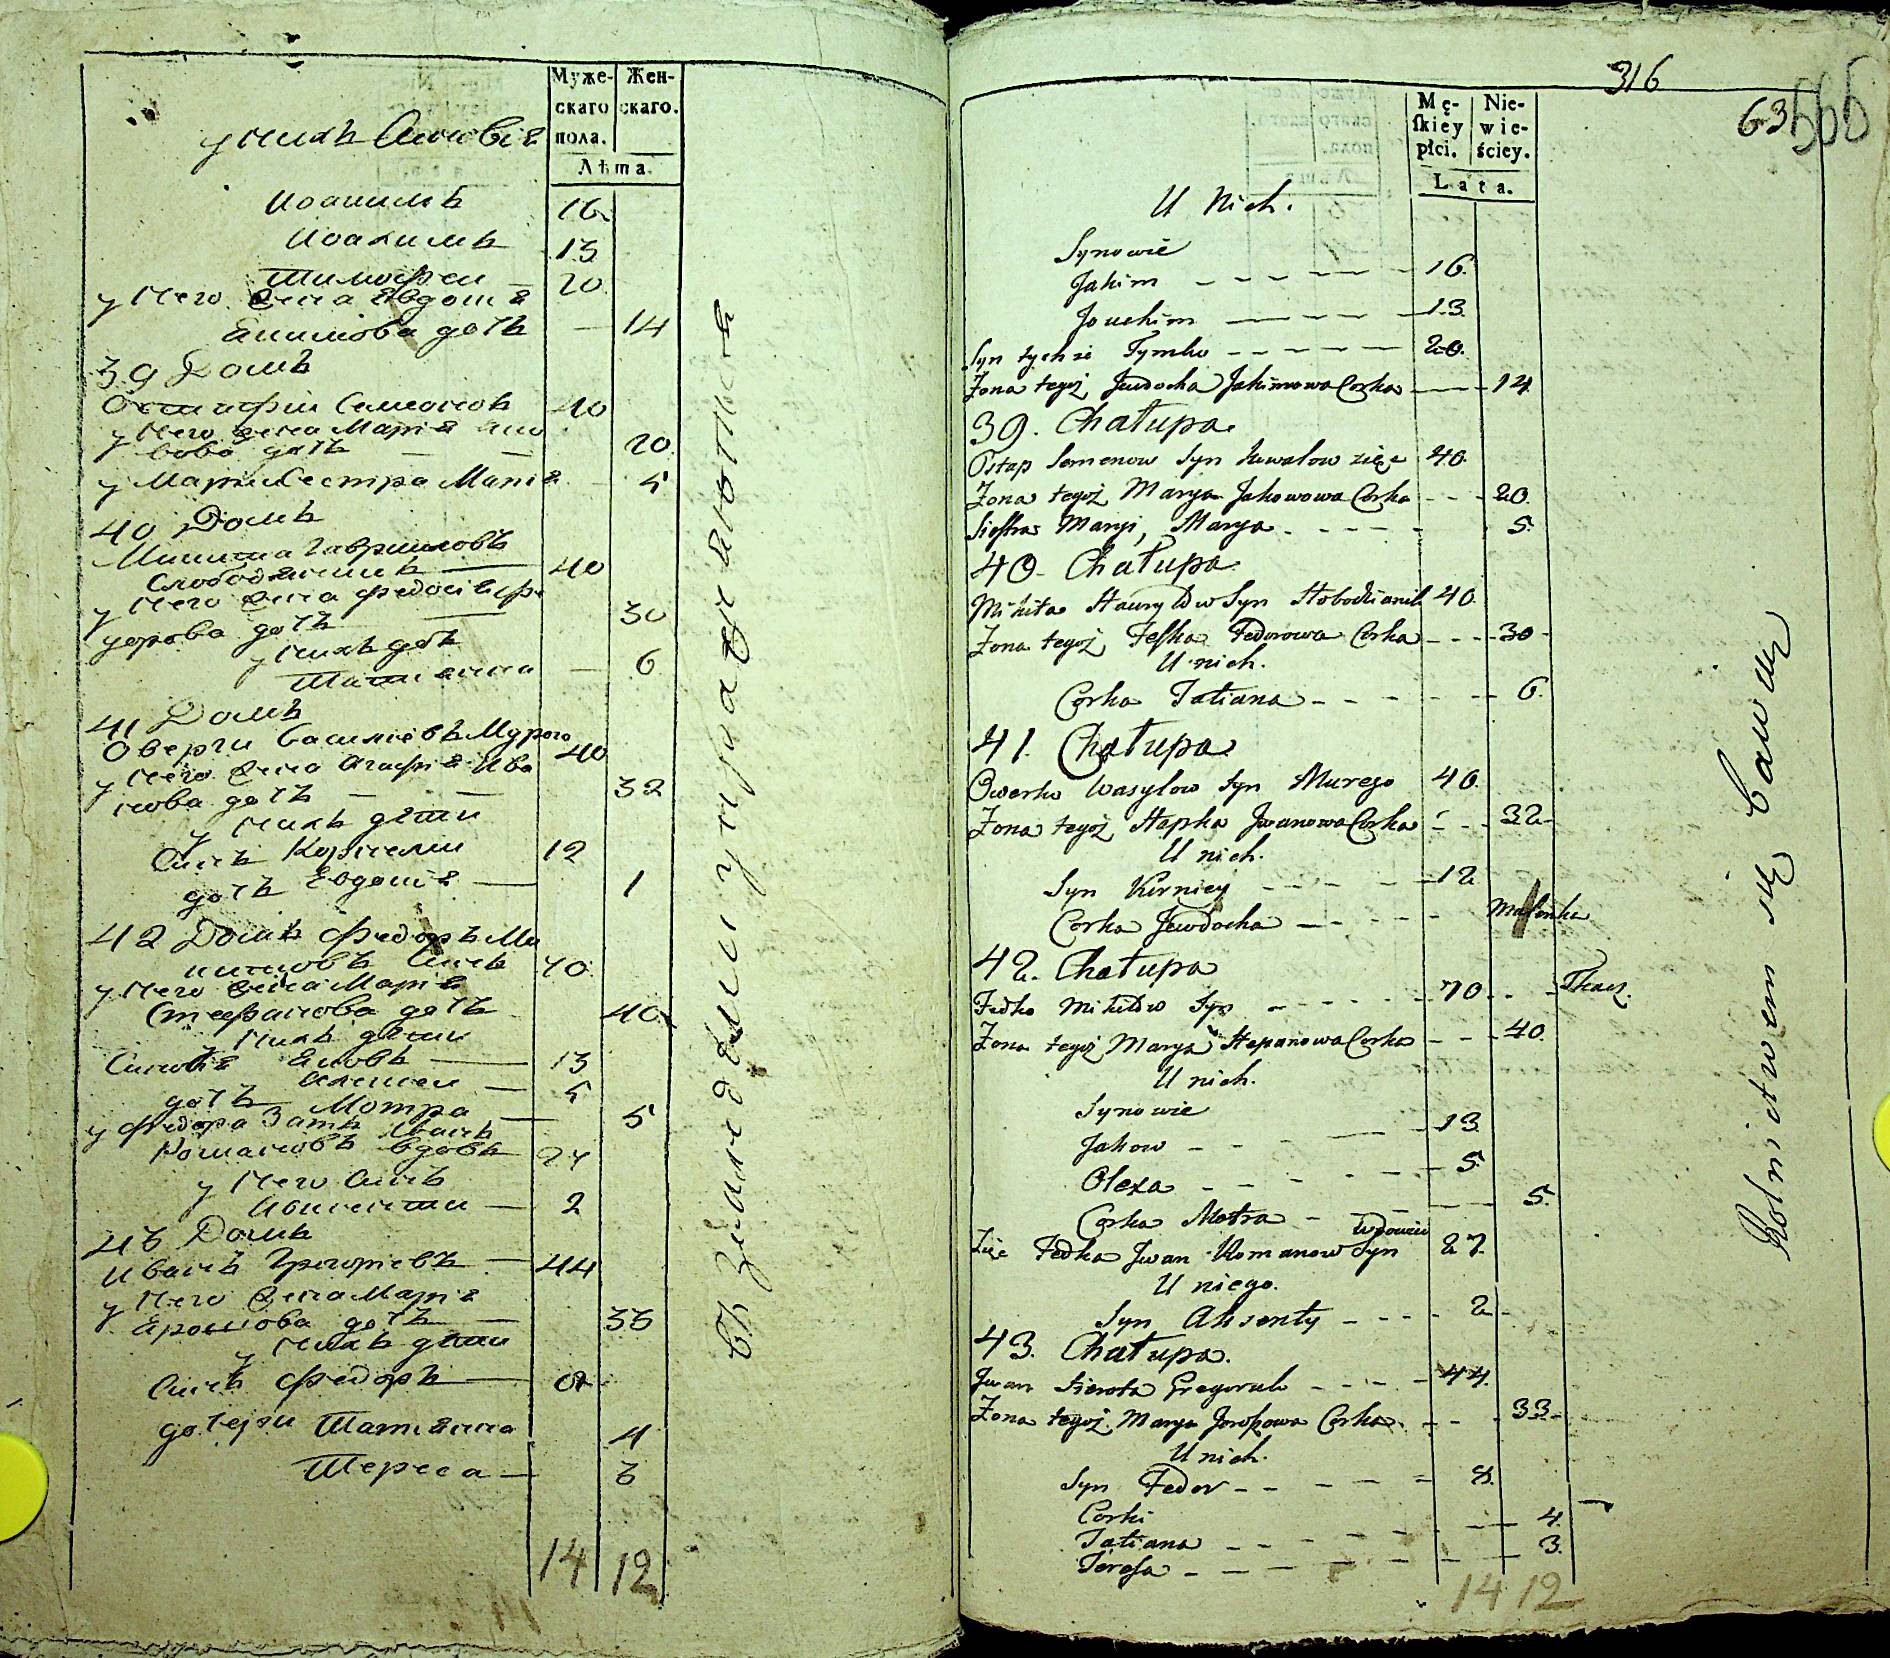 Муже-
скаго
пола.
Жен-
скаго.
Лѣта.
у нихъ Синовія
Иоакимъ 16
Иоахимъ 13
Тимофеи 20
у него жена Евдокія
Екимова дочь 14
39 Домъ
Остафіи Семеновъ 40
у него жена Марія Яко
вова дочь 20
у Маріи сестра Марія 5
40 Домъ
Микита Гавриловъ
Слободяникъ 40
у него жена Федосія Фе
дорова дочь 30
у нихъ дочь
Татіанна 6
41 Домъ
Оверки Василіевъ Мурого 40
у него жена Агафія Ива
нова дочь 32
у нихъ дѣти
Синъ Корнеми 12
дочь Евдокія 1
42 Домъ Федоръ Ми
китовъ Синъ 70
у него жена Марія
Стефанова дочь 40
у нихъ дѣти
Синовія Яковъ 13
Алексеи 5
дочь Мотра 5
у Федора Зять Иванъ
Романовъ вдовъ 27
у него Синъ
Авксентіи 2
43 Домъ
Иванъ Григоріевъ 44
у него жена Марія
Ярошова дочь 33
у нихъ дѣти
Синъ Федоръ 8
дочери Татіянна 4
Тереса 3
14 12
316
63
566
Mę-
ſkiey
płci.
Nie-
wie-
ściey.
Lata.
U Nich.
Synowie
Jakim 16.
Jouchim 13.
Syn tychże Tymko 20.
Zona tegoż Jewdocha Jakimowa Corka 14
39. Chałupa.
Ostap Semenow Syn Kuwalow zięc 40.
Zona tegoż Marya Jakowowa Corka 20.
Siestra Maryi, Marya 5.
40. Chałupa.
Mikita Hawryłow Syn Słobodzianik 40.
Zona tegoż Feska Fedorowa Corka 30
U nich.
Corka Tatiana 6.
41. Chałupa
Owerko Wasylow Syn Murego 40.
Zona tegoż Hapka Jwanowa Corka 32
U nich.
Syn Kirniey 12.
Corka Jewdocha 1
42. Chałupa
Fedko Mikitow Syn 70 Tkacz.
Zona tegoż Marya Stepanowa Corka 40.
U nich.
Synowie
Jakow 13.
Olexa 5.
Corka Motra 5.
Zięc Fedka Jwan Romanow Syn wdowiec 27.
U niego.
Syn Aksenty 2
43. Chałupa.
Jwan Sierota Gregoruk 44.
Zona tegoż Marya Jaroszowa Corka 33.
U nich.
Syn Fedor 8.
Corki
Tatiana 4.
Teresa 3.
14 12
Rolnictwem się bawią